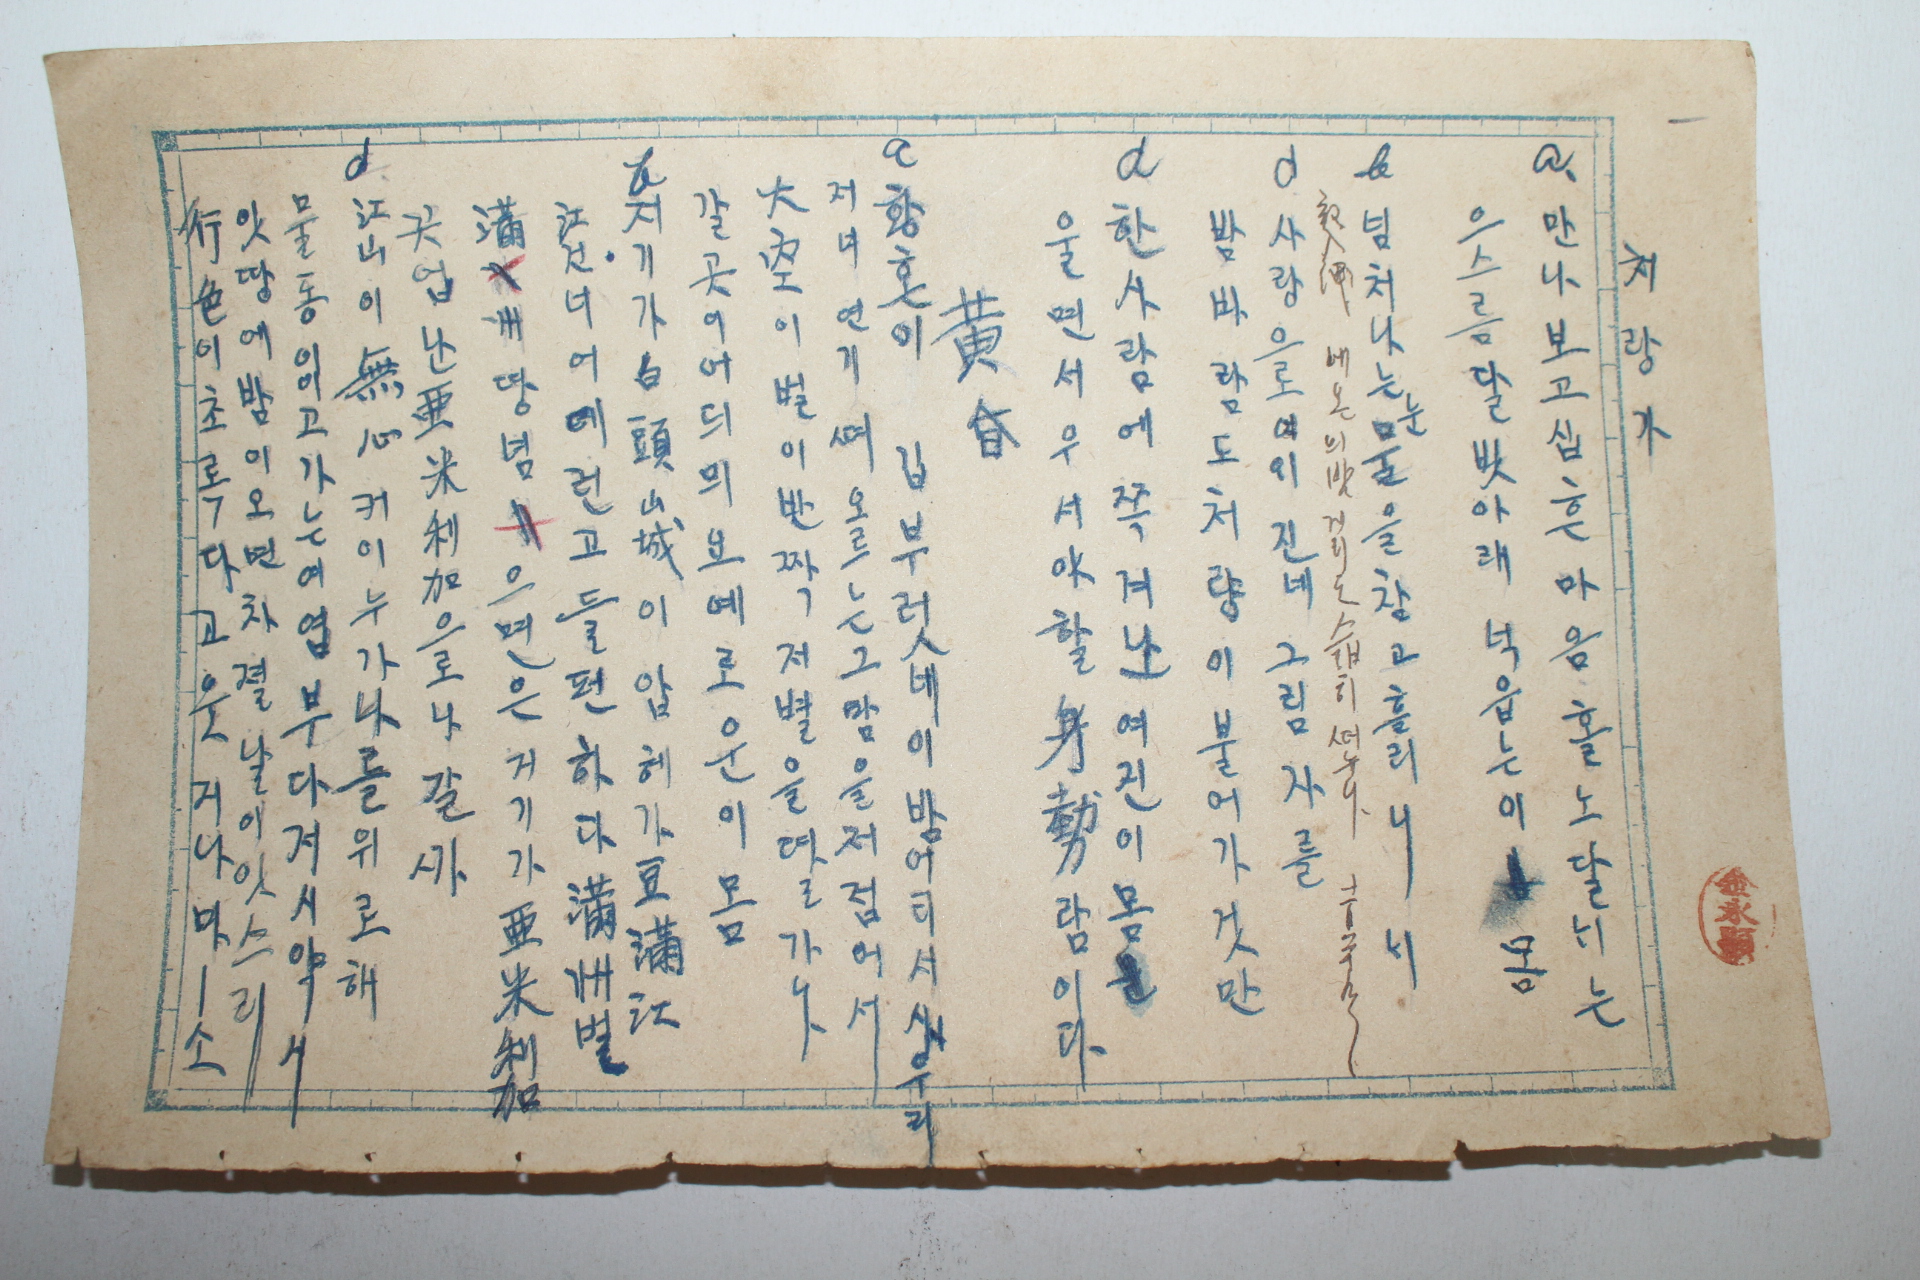 처량가
a. 만나보고십흔마음홀노달내는
으스름달밧아래 넉웁는이 몸
b 넘처나는눈물을참고흘리니서
에는의밧거리도
d 사랑으로여위진네그림자를
밤바람도처량이불어가것만
d 한사람에쪽겨난여진이몸
울면서우서야할身勢람이다
黃昏
a 황혼이 깁부럿네이밤어디서상우리
저녀연기떠오르는그맘을저점어서
大空이별이반짝저별을따르가나
갈곳이어듸메요예로운이몸
b 저기가白頭山城이압헤가豆滿江
江건너어메런고들편하다滿洲벌
滿洲땅넘으면은거기가亞米利加
곳업난亞米利加으로나갈까
d 江山이無心커이누가나를위로해
물동이이고가는여엽부다저시악시
잇땅에밤이오면차젤날이잇스리
行色이초록다고웃지나마ㅣ소